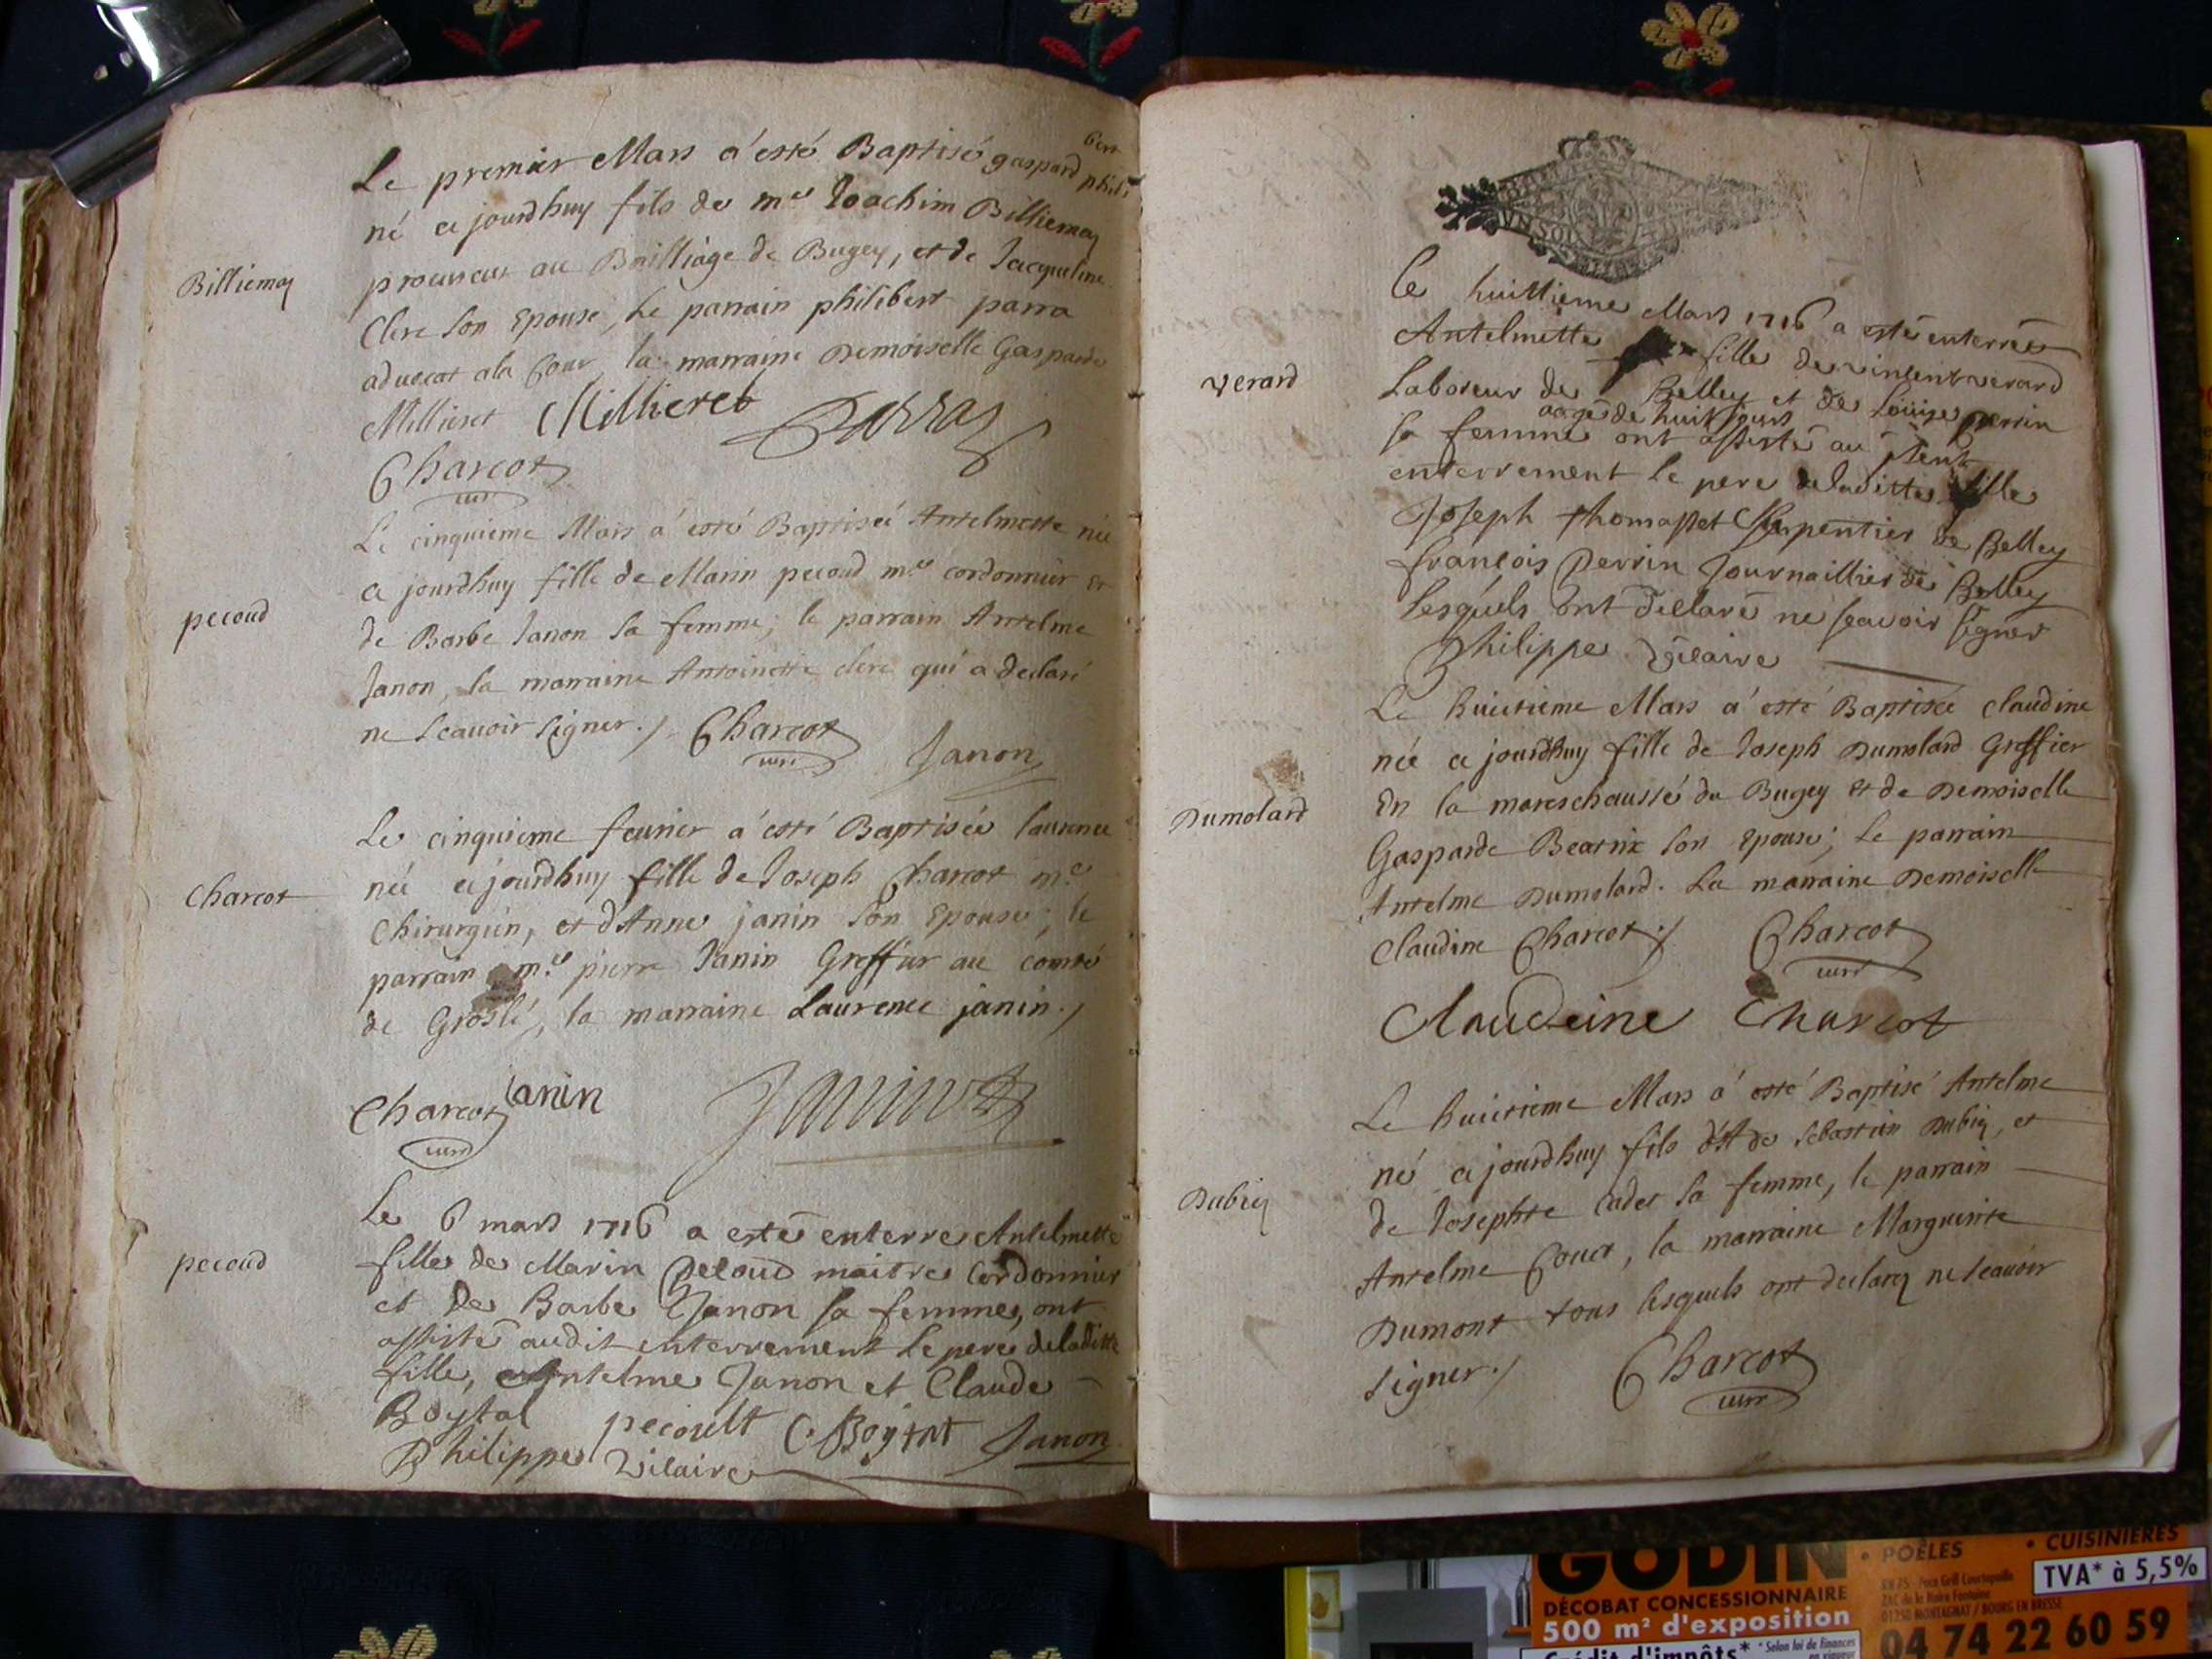 Le premier Mars a esté Baptisé gaspard phili
bert
né ce jourdhuy fils de me Joachim Billiemaz
Billiemaz
procureur au Bailliage de Bugey, et de Jacqueline
Clerc son Epouse, Le parrain philibert parra
advocat ala Cour, la marraine Demoiselle Gasparde
Millieret Millieret Parraz
Charcot
curé
Le cinquieme Mars a esté Baptisée Antelmette née
ce jourdhuy fille de Marin pecoud me cordonnier et
pecoud
de Barbe Janon sa femme; le parrain Antelme
Janon, la marraine Antoinette clerc qui a declaré
ne scauoir signer./ Charcot
curé Janon
Le cinquieme feurier a esté Baptisée laurence
Charcot
née ce jourdhuy fille de Joseph Charcot me
chirurgien, et d'Anne janin son Epouse; le
parrain me pierre Janin Greffier au comté
de Groslé, la marraine Laurence janin./
Charcot Janin
curé
Le 6 mars 1716 a esté enterre Antelmette
pecoud
fille de Marin Pecoud maitre Cordonnier
et de Barbe Janon sa femme, ont
assisté audit enterrement le pere deladitte
fille, Antelme Janon et Claude
Boytal pecoult C. Boytat Janon
Philippe Vicaire
Ce huittieme Mars 1716 a esté enterrée
Antelmette fille de vincent verard
verard
Laboreur de Belley et de Louise perrin
aagé de huit jours
sa femme ont assisté au psent
enterrement le pere deladitte fille
Joseph thomasset Charpentier de Belley
françois Perrin Journaillier de Belley
Lesquels ont declaré ne scavoir signer
Philippe Vicaire
Le huictieme Mars a esté Baptisée claudine
née ce jourdhuy fille de Joseph Dumolard Greffier
Dumolard
En la mareschaussé du Bugey et de Demoiselle
Gasparde Beatrix son Epouse; Le parrain
Antelme Dumolard. La marraine Demoiselle
Claudine Charcot./ Charcot
curé
Claudeine Charcot
Le huictieme Mars a esté Baptisé Antelme
né ce jourdhuy fils de sebastien Dubiez, et
Dubiez
de Josephte cadet sa femme, le parrain
Antelme Couet, la marraine Marguerite
Dumont tous lesquels ont declarez ne scauoir
signer./ Charcot
curé
GODIN
• POÊLES • CUISINIÈRES
DÉCOBAT CONCESSIONNAIRE
500 m² d'exposition
Crédit d'impôts* * Selon loi de finances
ZAC de la Neire Fontaine
01250 MONTAGNAT / BOURG EN BRESSE
TVA* à 5,5%
04 74 22 60 59